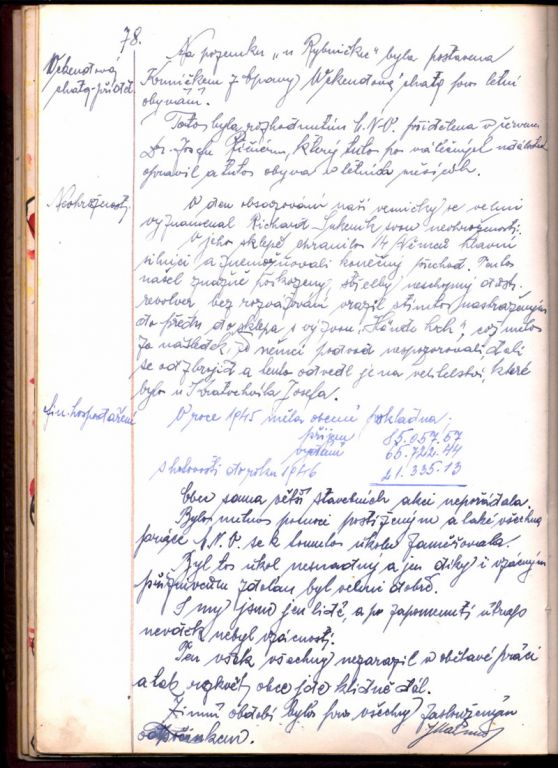 78.
Wekendová
chata-příděl.
Na pozemku „u Rybníčku" byla postavena
z Opavy Wekendová chata pro letní
obývání.
Tato byla rozhodnutím M.N.V. přidělena v červenci
Dr. Josefu který tuto po válečných událostech
opravil a tuto obývá v letních měsících.
Neohroženost.
V den obsazování naší vesničky se velmi
vyznamenal Richard svou neohrožeností.
V jeho sklepě chránilo 14 Němců hlavní
silnici a znemožňovali konečný přechod. Tento
našel značně poškozený, střelby neschopný důst.
revolver bez rozvažování vrazil s tímto nastraženým
do předu do sklepa s výzvou „Hände hoch", což mělo
za následek, že němci podvod nezpozorovali, dali
se odzbrojit a tento odvedl je na velitelství, které
bylo u Kratochvíla Josefa.
fin. hospodaření
V roce 1945 měla obecní pokladna;
příjem 85.057.57
vydání 65.722.44
s hotovostí do roku 1946 21.335.13
Obec sama větší stavebních akcí nepořádala.
Bylo nutno pomoci postiženým a také všechna
práce N.V. se k tomuto úkolu zaměřovala.
Byl to úkol nesnadný a jen díky i vzácným
zdolán byl velmi dobře.
I my jsme jen lidé, a po zapomenutí
nevděk nebyl vzácností.
Ten však všechny nezarazil v obětavé práci
a tak rozkvět obce jde klidně dál.
Zimní období bylo pro všechny zaslouženým
odpočinkem.